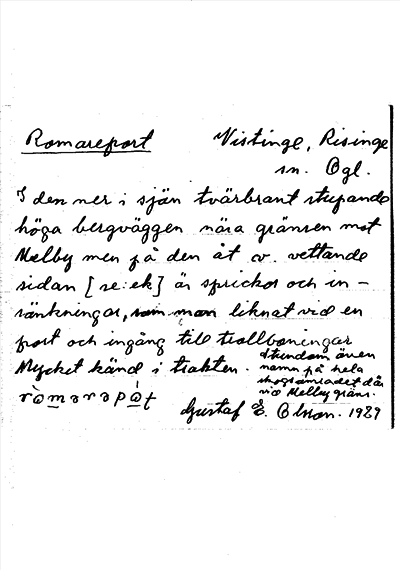 Romareport
Vistinge, Risinge
sn. Ögl.
I den ner i sjön tvärbrant stupande
höga bergväggen nära gränsen mot
Melby men på den åt v. vettande
sidan [se: ek] är sprickor och in-
sänkningar, som man liknat vid en
port och ingång till trollboningar
Mycket känd i trakten.
Stundom även
namn på hela
skogsområdet där
vid Melby gräns.
Gustaf E. Olsson. 1929